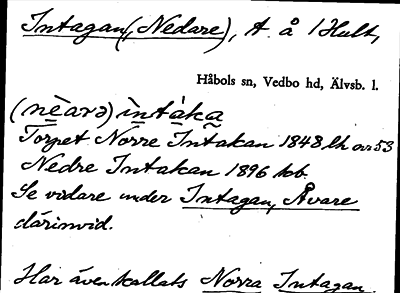 Intagan(, Nedare), t. å 1 Hult,
Håbols sn, Vedbo hd, Älvsb. l.
(nèarə) ìntáka
Torpet Norre Intakan 1848 lh
Nedre Intakan 1896
Se vidare under Intagan, Åvare
därinvid.
Har även kallats Norra Intagan